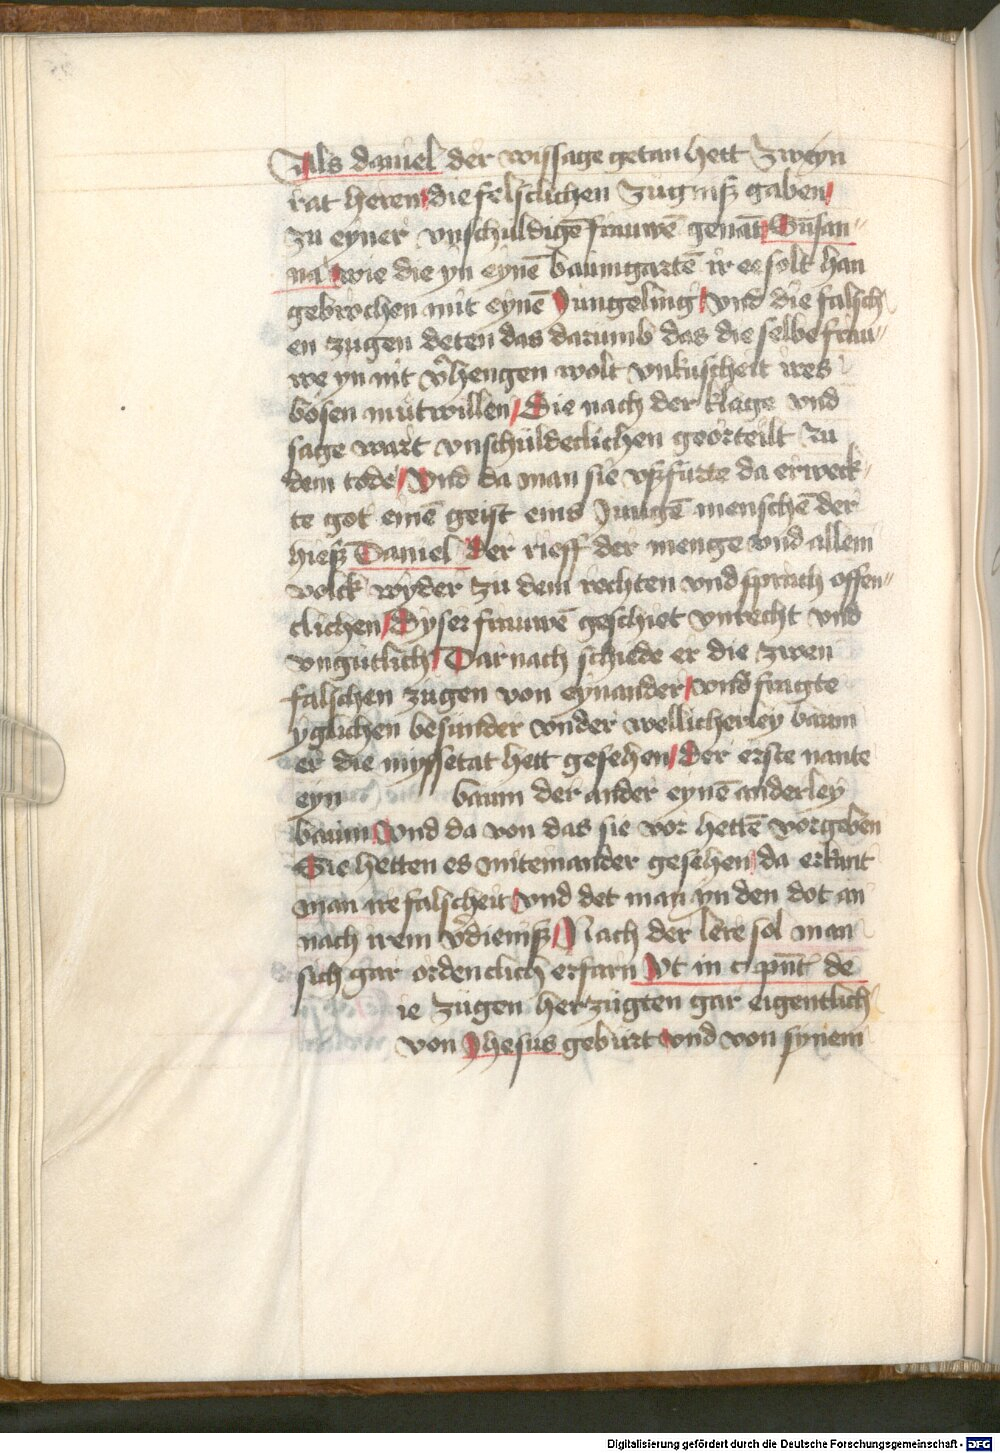 Als daniel der wissage getan hett zweyn
rat heren die felschlichen zugniß gaben
zu eyner vnschuldigē frauwē genāt Susan„
na wie die yn eynē baumgartē ir ee solt han
gebrochen mit eynē Jungeling vnd die falsch
en zugen deten das darumb das die selbe frau„
we yn nit v̉hengen wolt vnkuscheit ires
bösen mutwillen / Die nach der klage vnd
sage wart vnschuldeclichen georteilt zu
dem tode / Vnd da man sie vßfurte da erweck„
te got einē geist eins Jungē menschē der
hieß Daniel Der rieff der menge vnd allem
volck wyder zu dem rechten vnd sprach offen„
clichen / Dyser frauwē geschiet vnrecht vnd
vngutlich / Dar nach schiede er die zwen
falschen zugen von eynander / vnd fragte
yglichen besunder vnder wellicherley baum
er die myssetat hett gesehen / Der erste nante
eyn baum der ander eynē anderley
baum Vnd da von das sie vor hettē vorgeben
Sie hetten es miteinander gesehen da erkant
man ire falscheit vnd det man yn den dot an
nach irem v̉dieniß / Nach der lere sol man
sich gar ordenclich erfarn Vt in c pn̄t de
ie zugen herzugten gar eigentlich
von Jhesus geburt vnd von synem
Digitalisierung gefördert durch die Deutsche Forschungsgemeinschaft - DFG